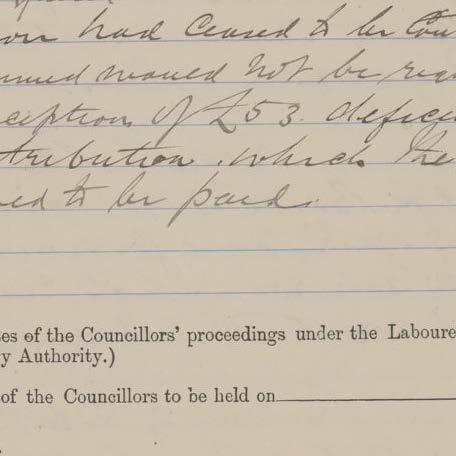 had ceased to be Cou
would not be req
ception of £53. defice
tribution. which the
ed to be paid.
es of the Councillors' proceedings under the Laboure
y Authority.)
of the Councillors to be held on